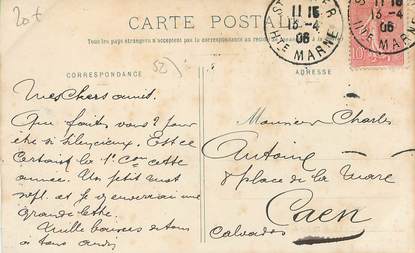 20+
CARTE POSTALE
Tous les pays étrangers n'acceptent pas la correspondance au recto
CORRESPONDANCE
52)
ADRESSE
ER
Hte MARNE
11 15
13-4
06
11 15
13-4
06
Hte MARNE
10
Mes chers amis.
Que faites vous? pour
être si silencieux. Est ce
certain la 1e Con cette
année. Un petit mot
 et je
grande lettre.
Mille baisers de tous
à tous
Monsieur Charles
Antoine
8 place de la Mare
Caen
Calvados